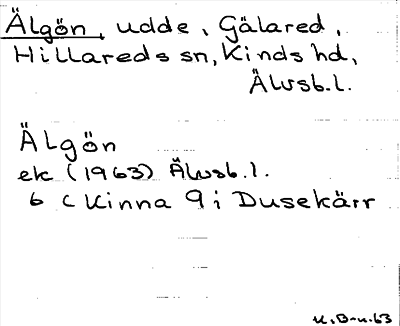 Älgön, udde, Gälared,
Hillareds sn, Kinds hd,
Älvsb.l.
Älgön
ek (1963) Älvsb.l.
6 c Kinna 9 i Dusekärr